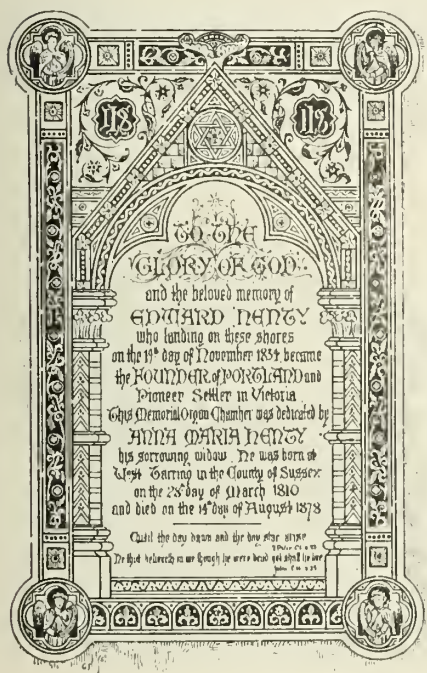 IHS IHS
TO THE
GLORY OF GOD
and the beloved memory of
EDWARD HENTY
who landing on these shores
on the 19th day of November 1834 became
the FOUNDER of PORTLAND and
Pioneer Settler in Victoria
This Memorial Organ Chamber was dedicated by
ANNA MARIA HENTY
his sorrowing widow. He was born at
West Tarring in the County of Sussex
on the 28th day of March 1810
and died on the 14th day of August 1878
Until the day dawn and the day star arise
2 Peter
He that believeth in me though he were dead yet shall he live
John